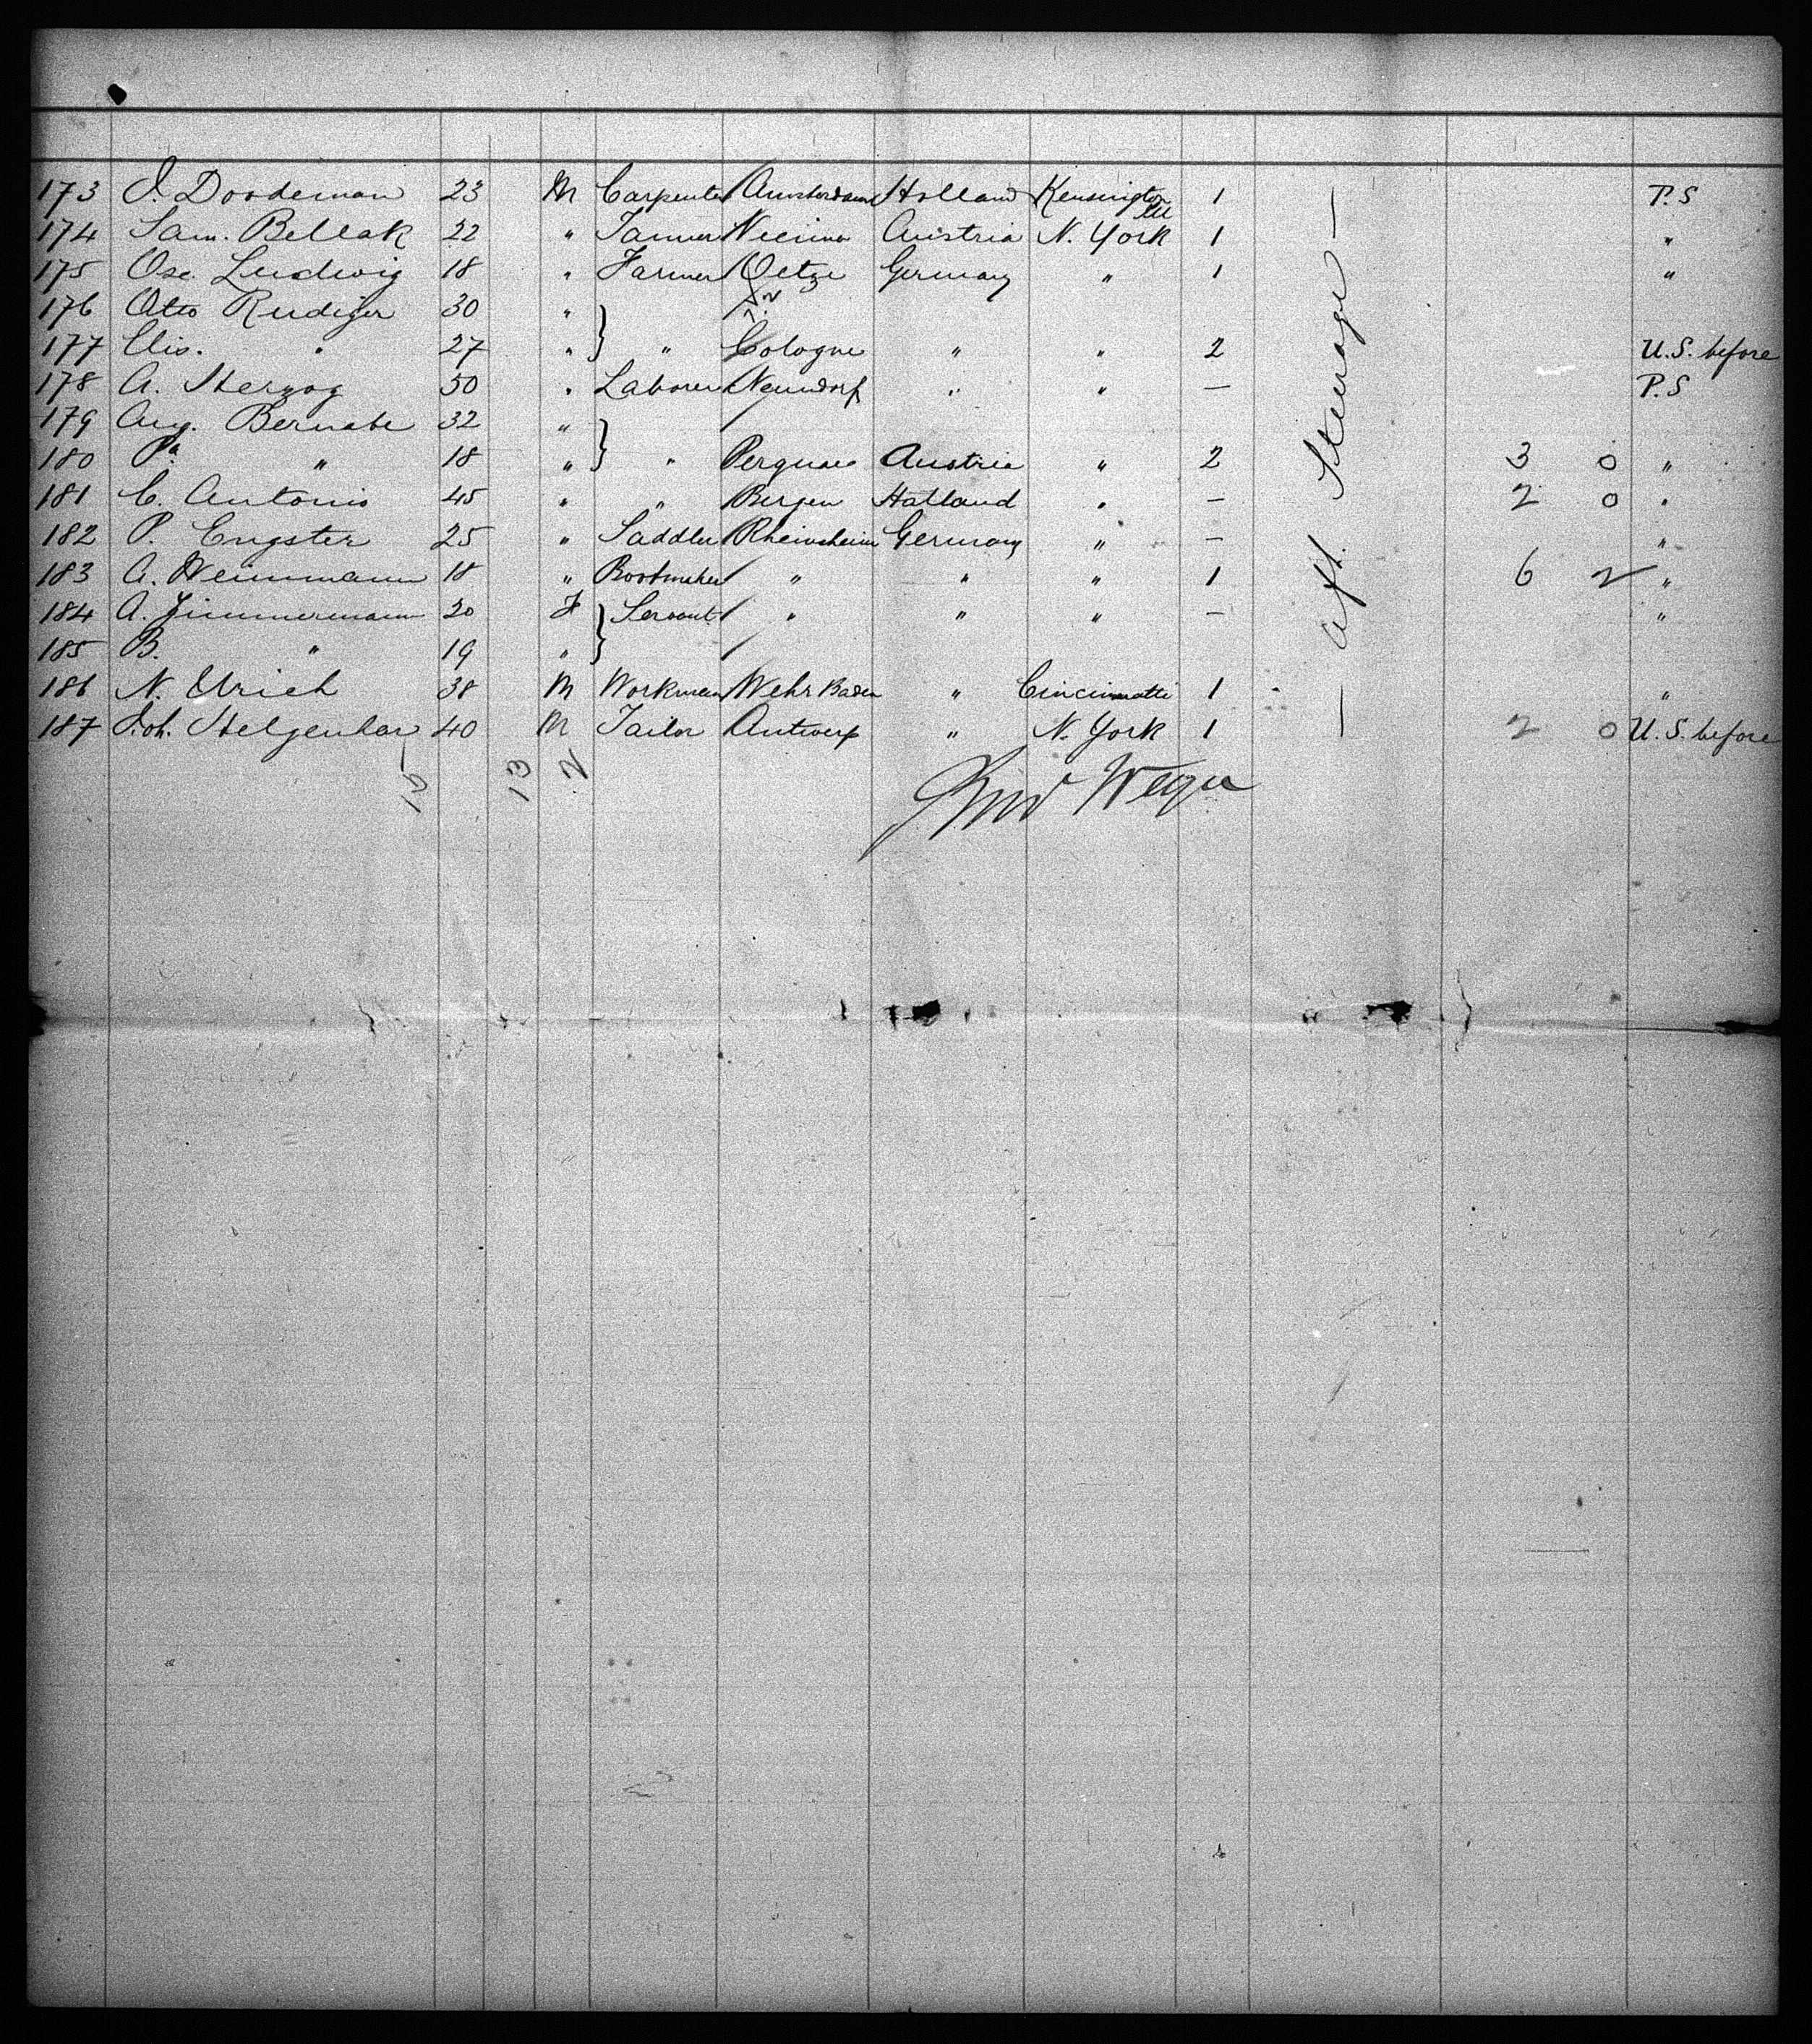 173 J. Doodeman 23 M Carpenter Amsterdam Holland Kensington Ill 1 P.S
174 Sam. Bellak 22 " Tanner Austria N. York 1 "
175 Osc. Ludwig 18 " Farmer Oetze Germany " 1 "
176 Otto Rudiger 30 " }
177 Elis. " 27 " } " Cologne " " 2 U.S. before
178 A. Herzog 50 " Laborer Neundorf " " — P.S
179 Aug. Bernabe 32 " }
180 Pa. " 18 " } " Austria " 2 3 0 "
181 C. Antonio 45 " " Bergen Halland " — 2 0 "
182 P. Engster 25 " Saddler Rheinsheim Germany " — "
183 A. Weinmann 18 " Bootmaker " " " 1 6 2 "
184 A. Zimmermann 20 F } Servant " " " — "
185 B. " 19 " }
186 N. Urich 38 M Workman Wehr Baden " Cincinnatti 1 "
187 Joh. Helgenhar 40 M Tailor Antwerp " N. York 1 2 0 U.S. before
— aft. Steerage —
15 13 2